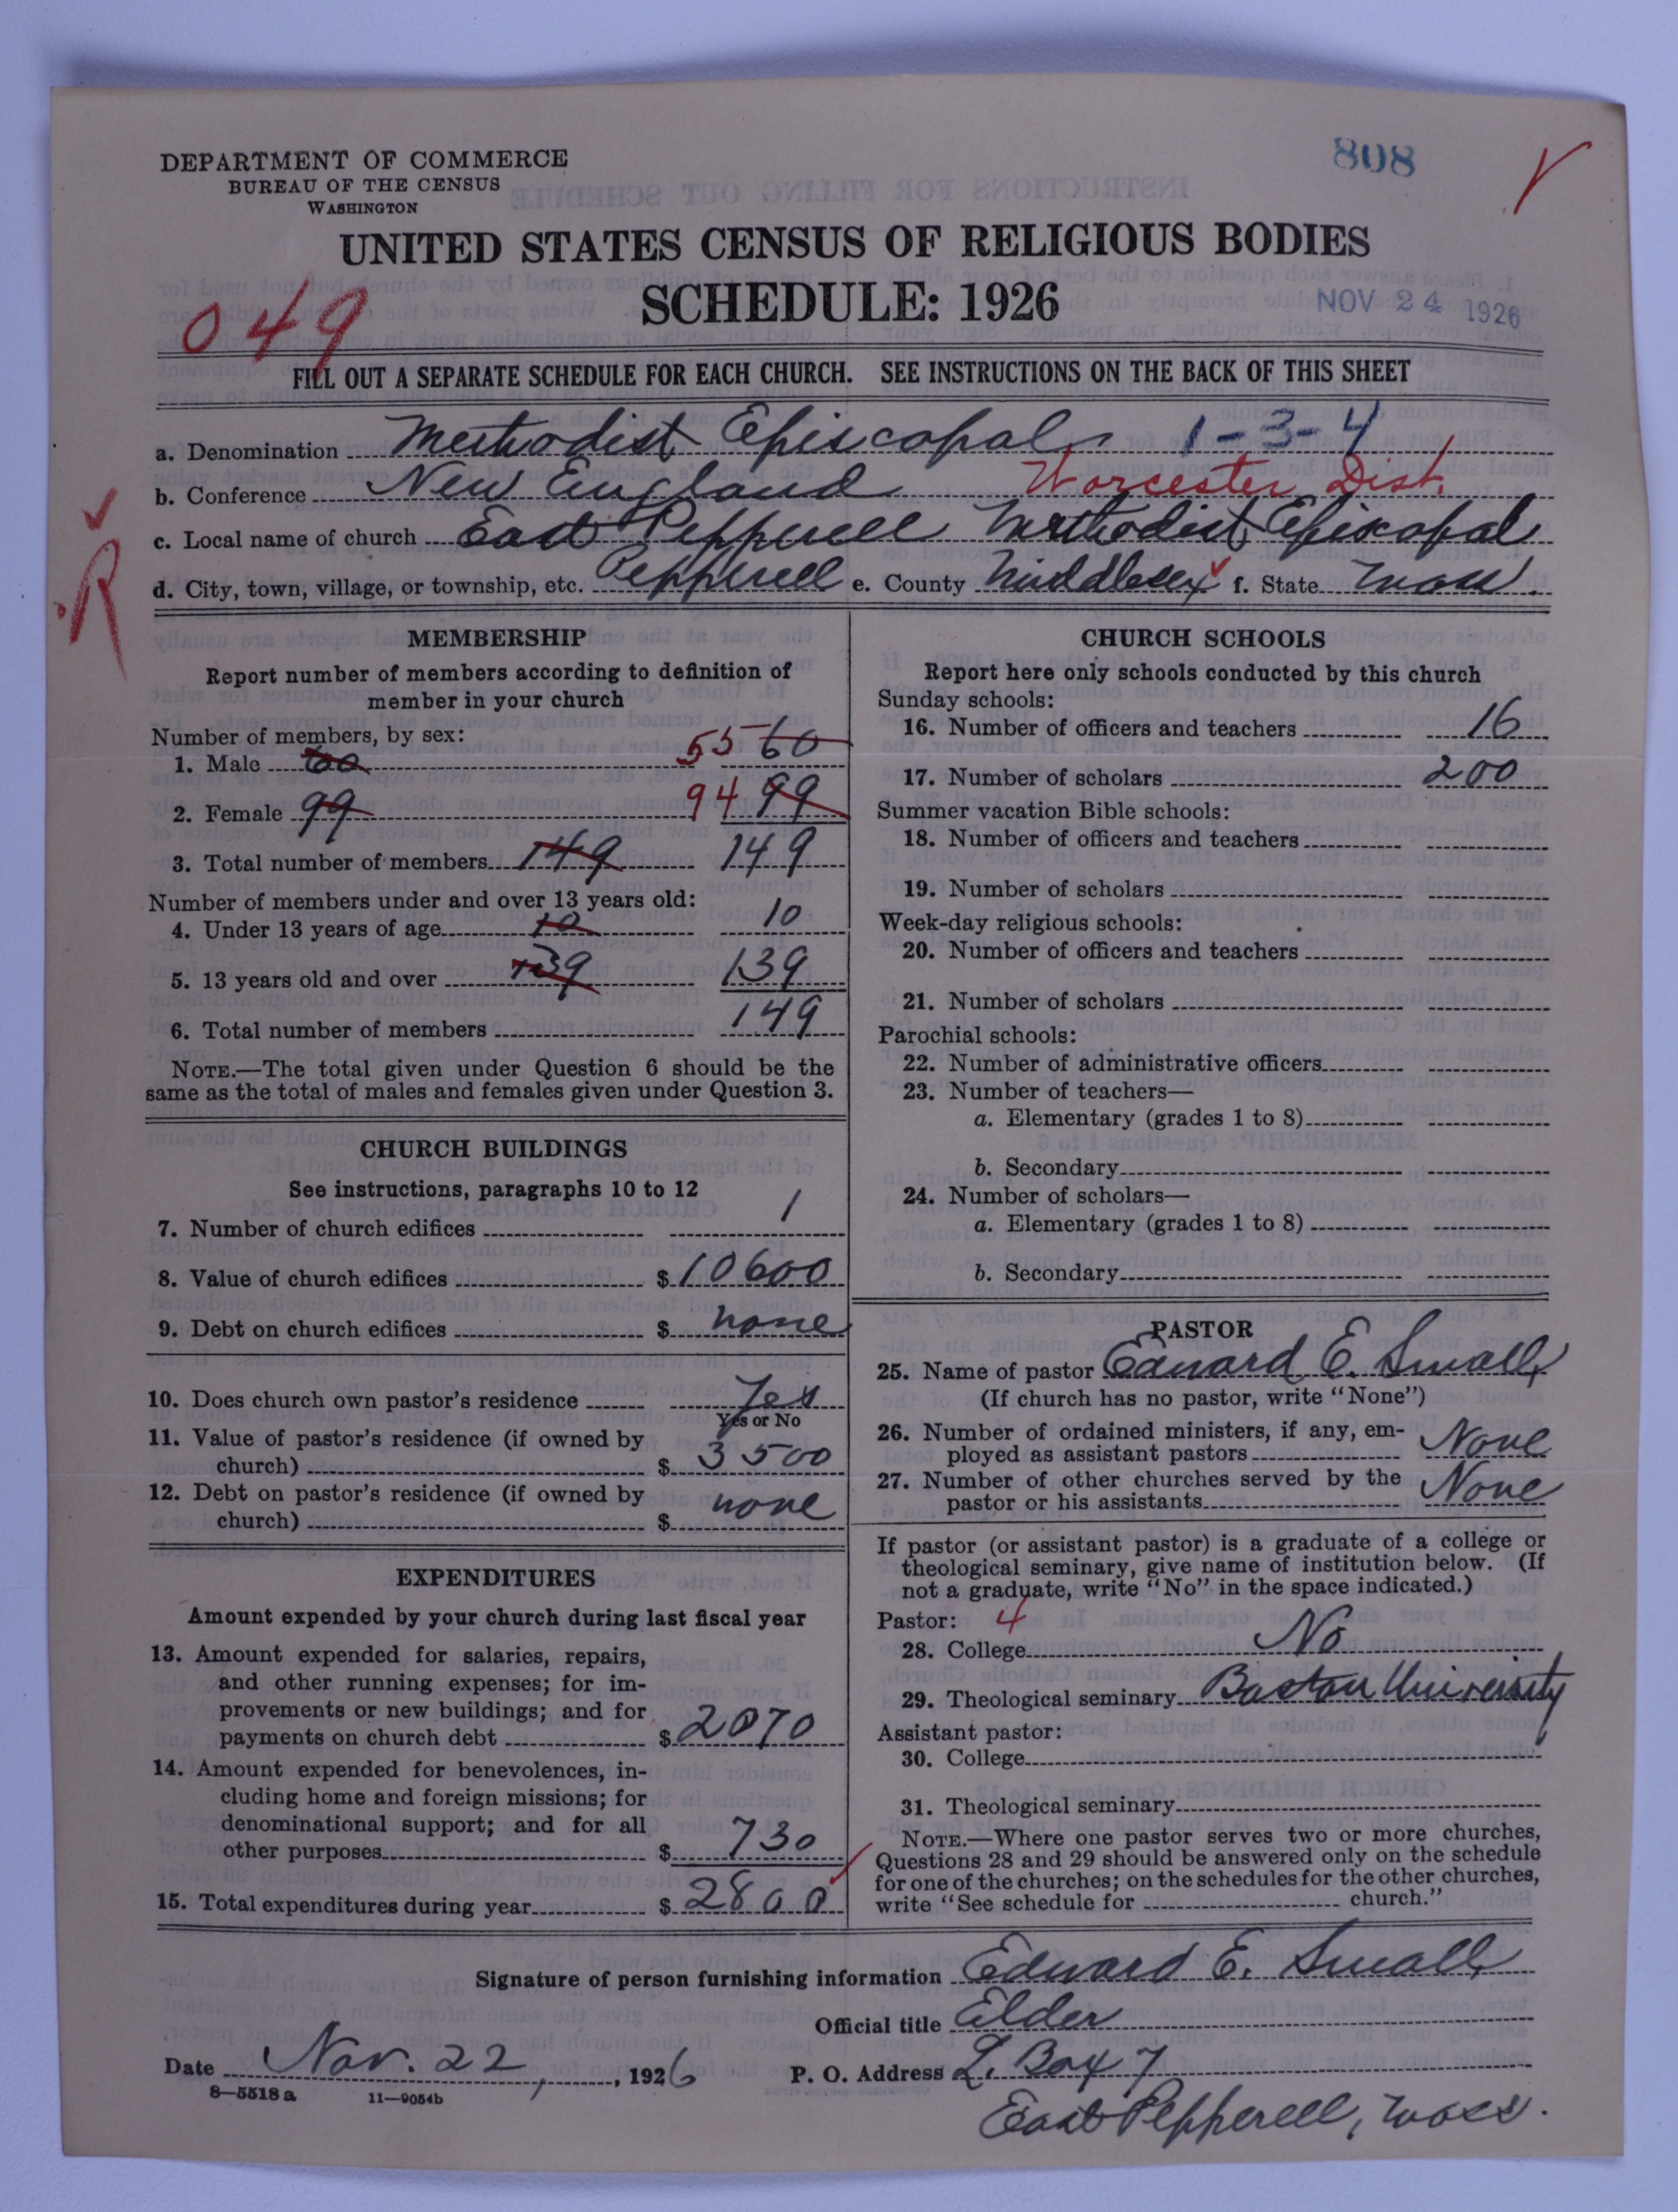 DEPARTMENT OF COMMERCE
BUREAU OF THE CENSUS
WASHINGTON
808
UNITED STATES CENSUS OF RELIGIOUS BODIES
SCHEDULE: 1926
NOV 24 1926
049
FILL OUT A SEPARATE SCHEDULE FOR EACH CHURCH. SEE INSTRUCTIONS ON THE BACK OF THIS SHEET
a. Denomination Methodist Episcopal 1-3-4
b. Conference New England Worcester Dist.
c. Local name of church East Pepperell Methodist Episcopal
d. City, town, village, or township, etc. Pepperell e. County Middlesex f. State Mass.
R
MEMBERSHIP
Report number of members according to definition of
member in your church
Number of members, by sex:
1. Male 60 55 60
2. Female 99 94 99
3. Total number of members 149 149
Number of members under and over 13 years old:
4. Under 13 years of age 10 10
5. 13 years old and over 139 139
6. Total number of members 149
NOTE.—The total given under Question 6 should be the
same as the total of males and females given under Question 3.
CHURCH BUILDINGS
See instructions, paragraphs 10 to 12
7. Number of church edifices 1
8. Value of church edifices $ 10600
9. Debt on church edifices $ none
10. Does church own pastor's residence Yes
Yes or No
11. Value of pastor's residence (if owned by
church) $ 3500
12. Debt on pastor's residence (if owned by
church) $ none
EXPENDITURES
Amount expended by your church during last fiscal year
13. Amount expended for salaries, repairs,
and other running expenses; for im-
provements or new buildings; and for
payments on church debt $ 2070
14. Amount expended for benevolences, in-
cluding home and foreign missions; for
denominational support; and for all
other purposes $ 730
15. Total expenditures during year $ 2800
CHURCH SCHOOLS
Report here only schools conducted by this church
Sunday schools:
16. Number of officers and teachers 16
17. Number of scholars 200
Summer vacation Bible schools:
18. Number of officers and teachers
19. Number of scholars
Week-day religious schools:
20. Number of officers and teachers
21. Number of scholars
Parochial schools:
22. Number of administrative officers
23. Number of teachers—
a. Elementary (grades 1 to 8)
b. Secondary
24. Number of scholars—
a. Elementary (grades 1 to 8)
b. Secondary
PASTOR
25. Name of pastor Edward E. Small
(If church has no pastor, write "None")
26. Number of ordained ministers, if any, em-
ployed as assistant pastors None
27. Number of other churches served by the
pastor or his assistants None
If pastor (or assistant pastor) is a graduate of a college or
theological seminary, give name of institution below. (If
not a graduate, write "No" in the space indicated.)
Pastor: 4
28. College No
29. Theological seminary Boston University
Assistant pastor:
30. College
31. Theological seminary
NOTE.—Where one pastor serves two or more churches,
Questions 28 and 29 should be answered only on the schedule
for one of the churches; on the schedules for the other churches,
write "See schedule for church."
Signature of person furnishing information Edward E. Small
Official title Elder
Date Nov. 22, 1926 P. O. Address L. Box 7
8—5518 a 11—9054b
East Pepperell, Mass.